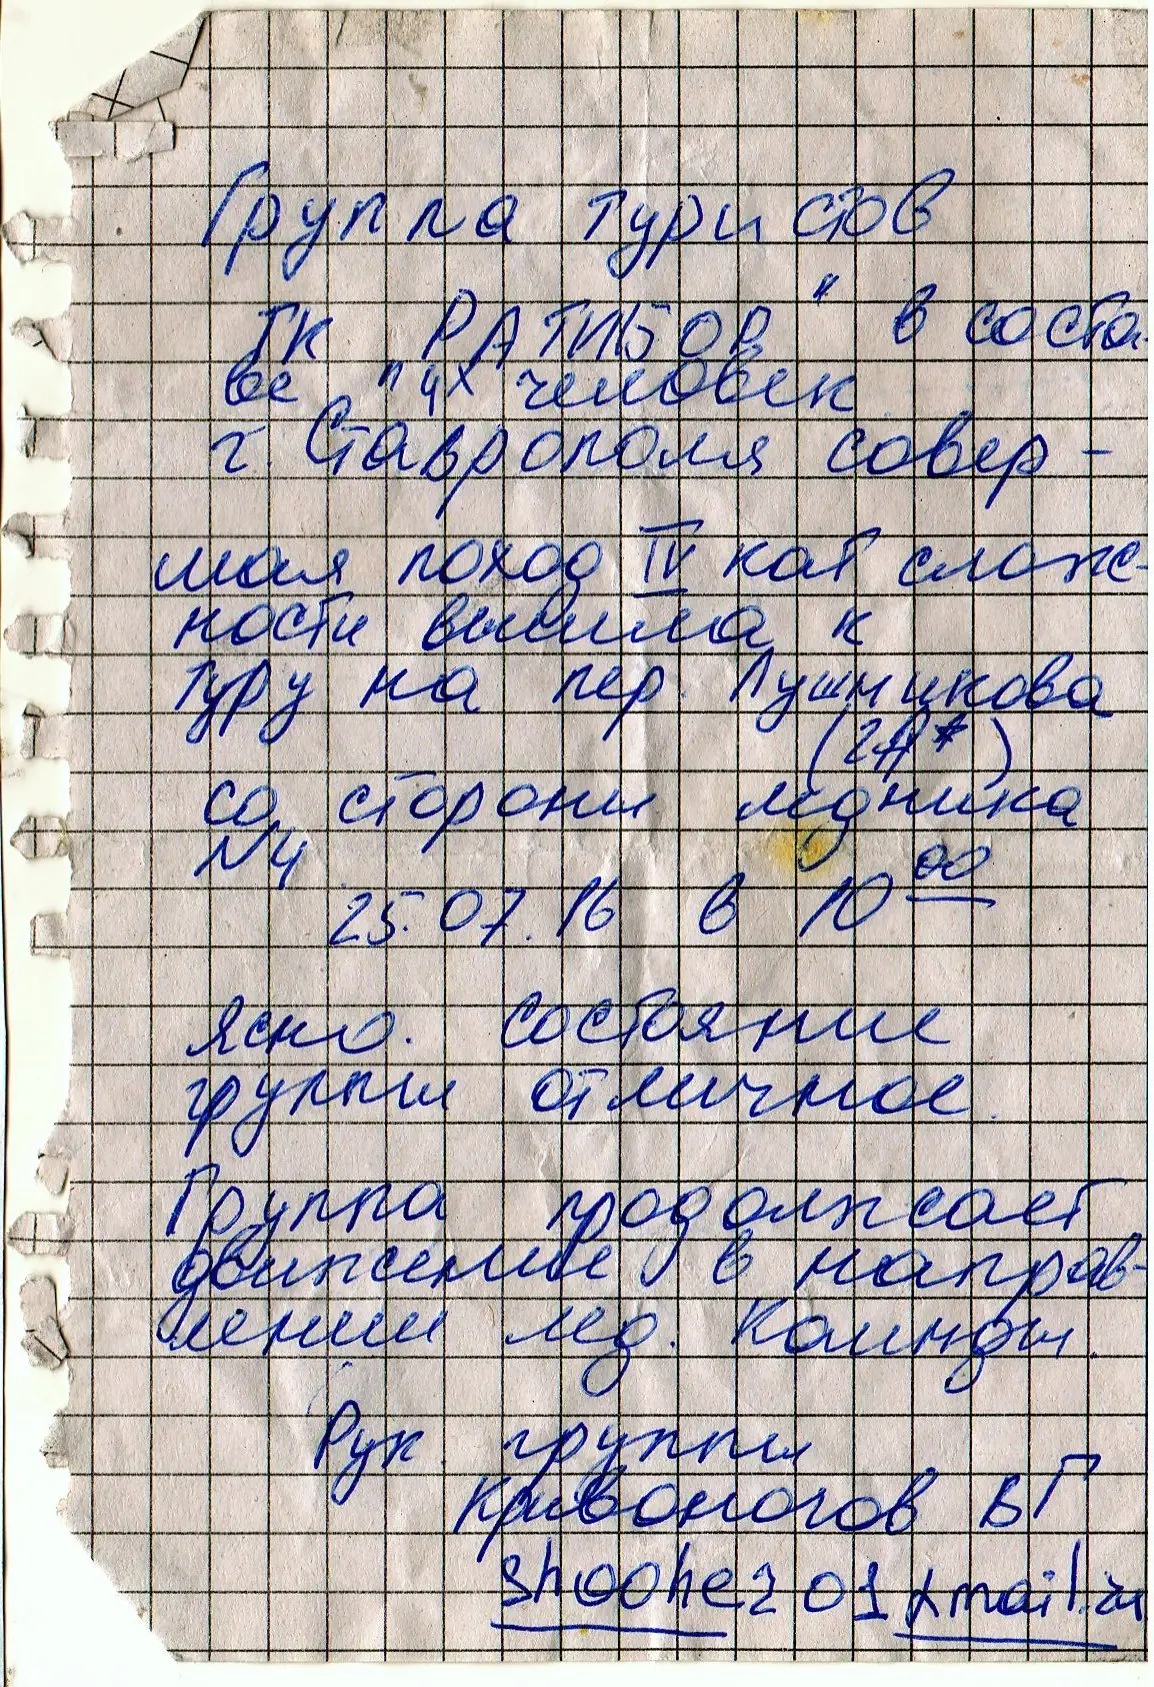 Группа туристов
ТК "РАТИБОР" в соста-
ве 4х человек
г. Ставрополя совер-
шая поход IV кат слож-
ности вышла к
туру на пер. Лушникова
(2А*)
со стороны ледника
N4
25.07.16 в 10 00
Ясно. Состояние
группы отличное.
Группа продолжает
движение в направ-
лении лед. Каинды.
Рук. группы
Кривоногов ВГ